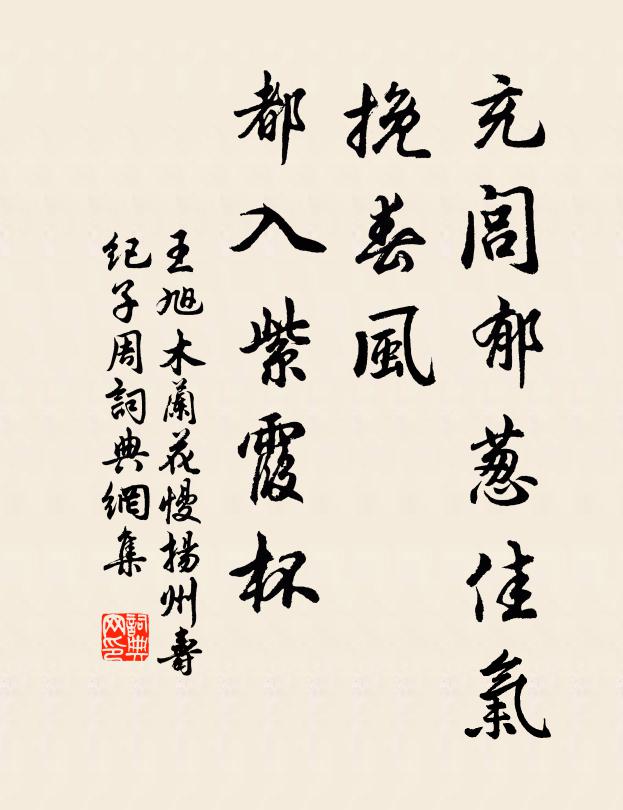 充閭郁葱佳氣
挽春風
都入紫霞杯
王旭木蘭花慢揚州壽
紀子周詞典網集
詞典网印